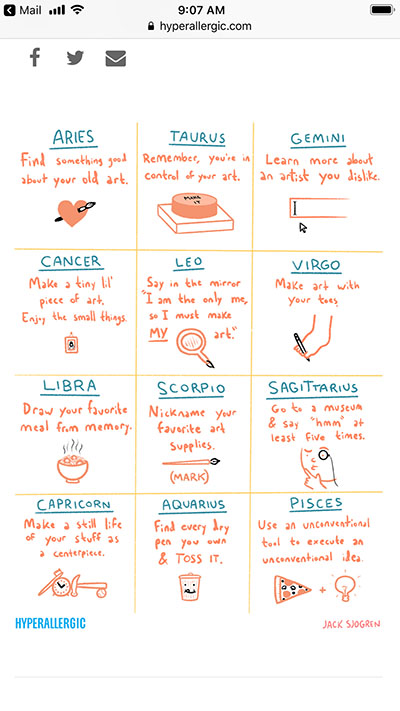 Mail
9:07 AM
hyperallergic.com
ARIES
Find something good
about your old art.
TAURUS
Remember, you're in
control of your art.
MAKE
IT
GEMINI
Learn more about
an artist you dislike.
CANCER
Make a tiny lil'
piece of art.
Enjoy the small things.
LEO
Say in the mirror
"I am the only me,
so I must make
MY art."
VIRGO
Make art with
your toes.
LIBRA
Draw your favorite
meal from memory.
SCORPIO
Nickname your
favorite art
supplies.
(MARK)
SAGITTARIUS
Go to a museum
& say "hmm" at
least five times.
CAPRICORN
Make a still life
of your stuff as
a centerpiece.
AQUARIUS
Find every dry
pen you own
& TOSS IT.
PISCES
Use an unconventional
tool to execute an
unconventional idea.
+
HYPERALLERGIC
JACK SJOGREN